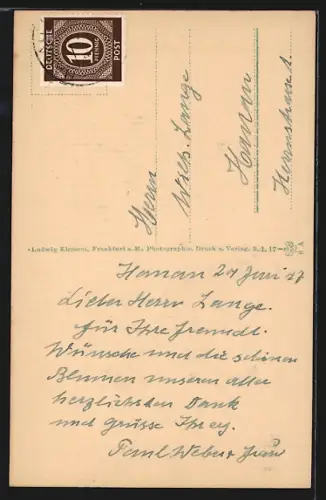 DEUTSCHE
10
PFENNIG
POST
Herrn
Wilh. Lange
Hanau
Herrnstrasse 1.
Ludwig Klement, Frankfurt a. M., Photographie, Druck u. Verlag.
Hanau 24 Juni 47
Lieber Herr Lange.
für Ihre freundl.
Wünsche und die schönen
Blumen unseren aller
herzlichsten Dank
und Grüsse Ihr
Paul Weber & Frau